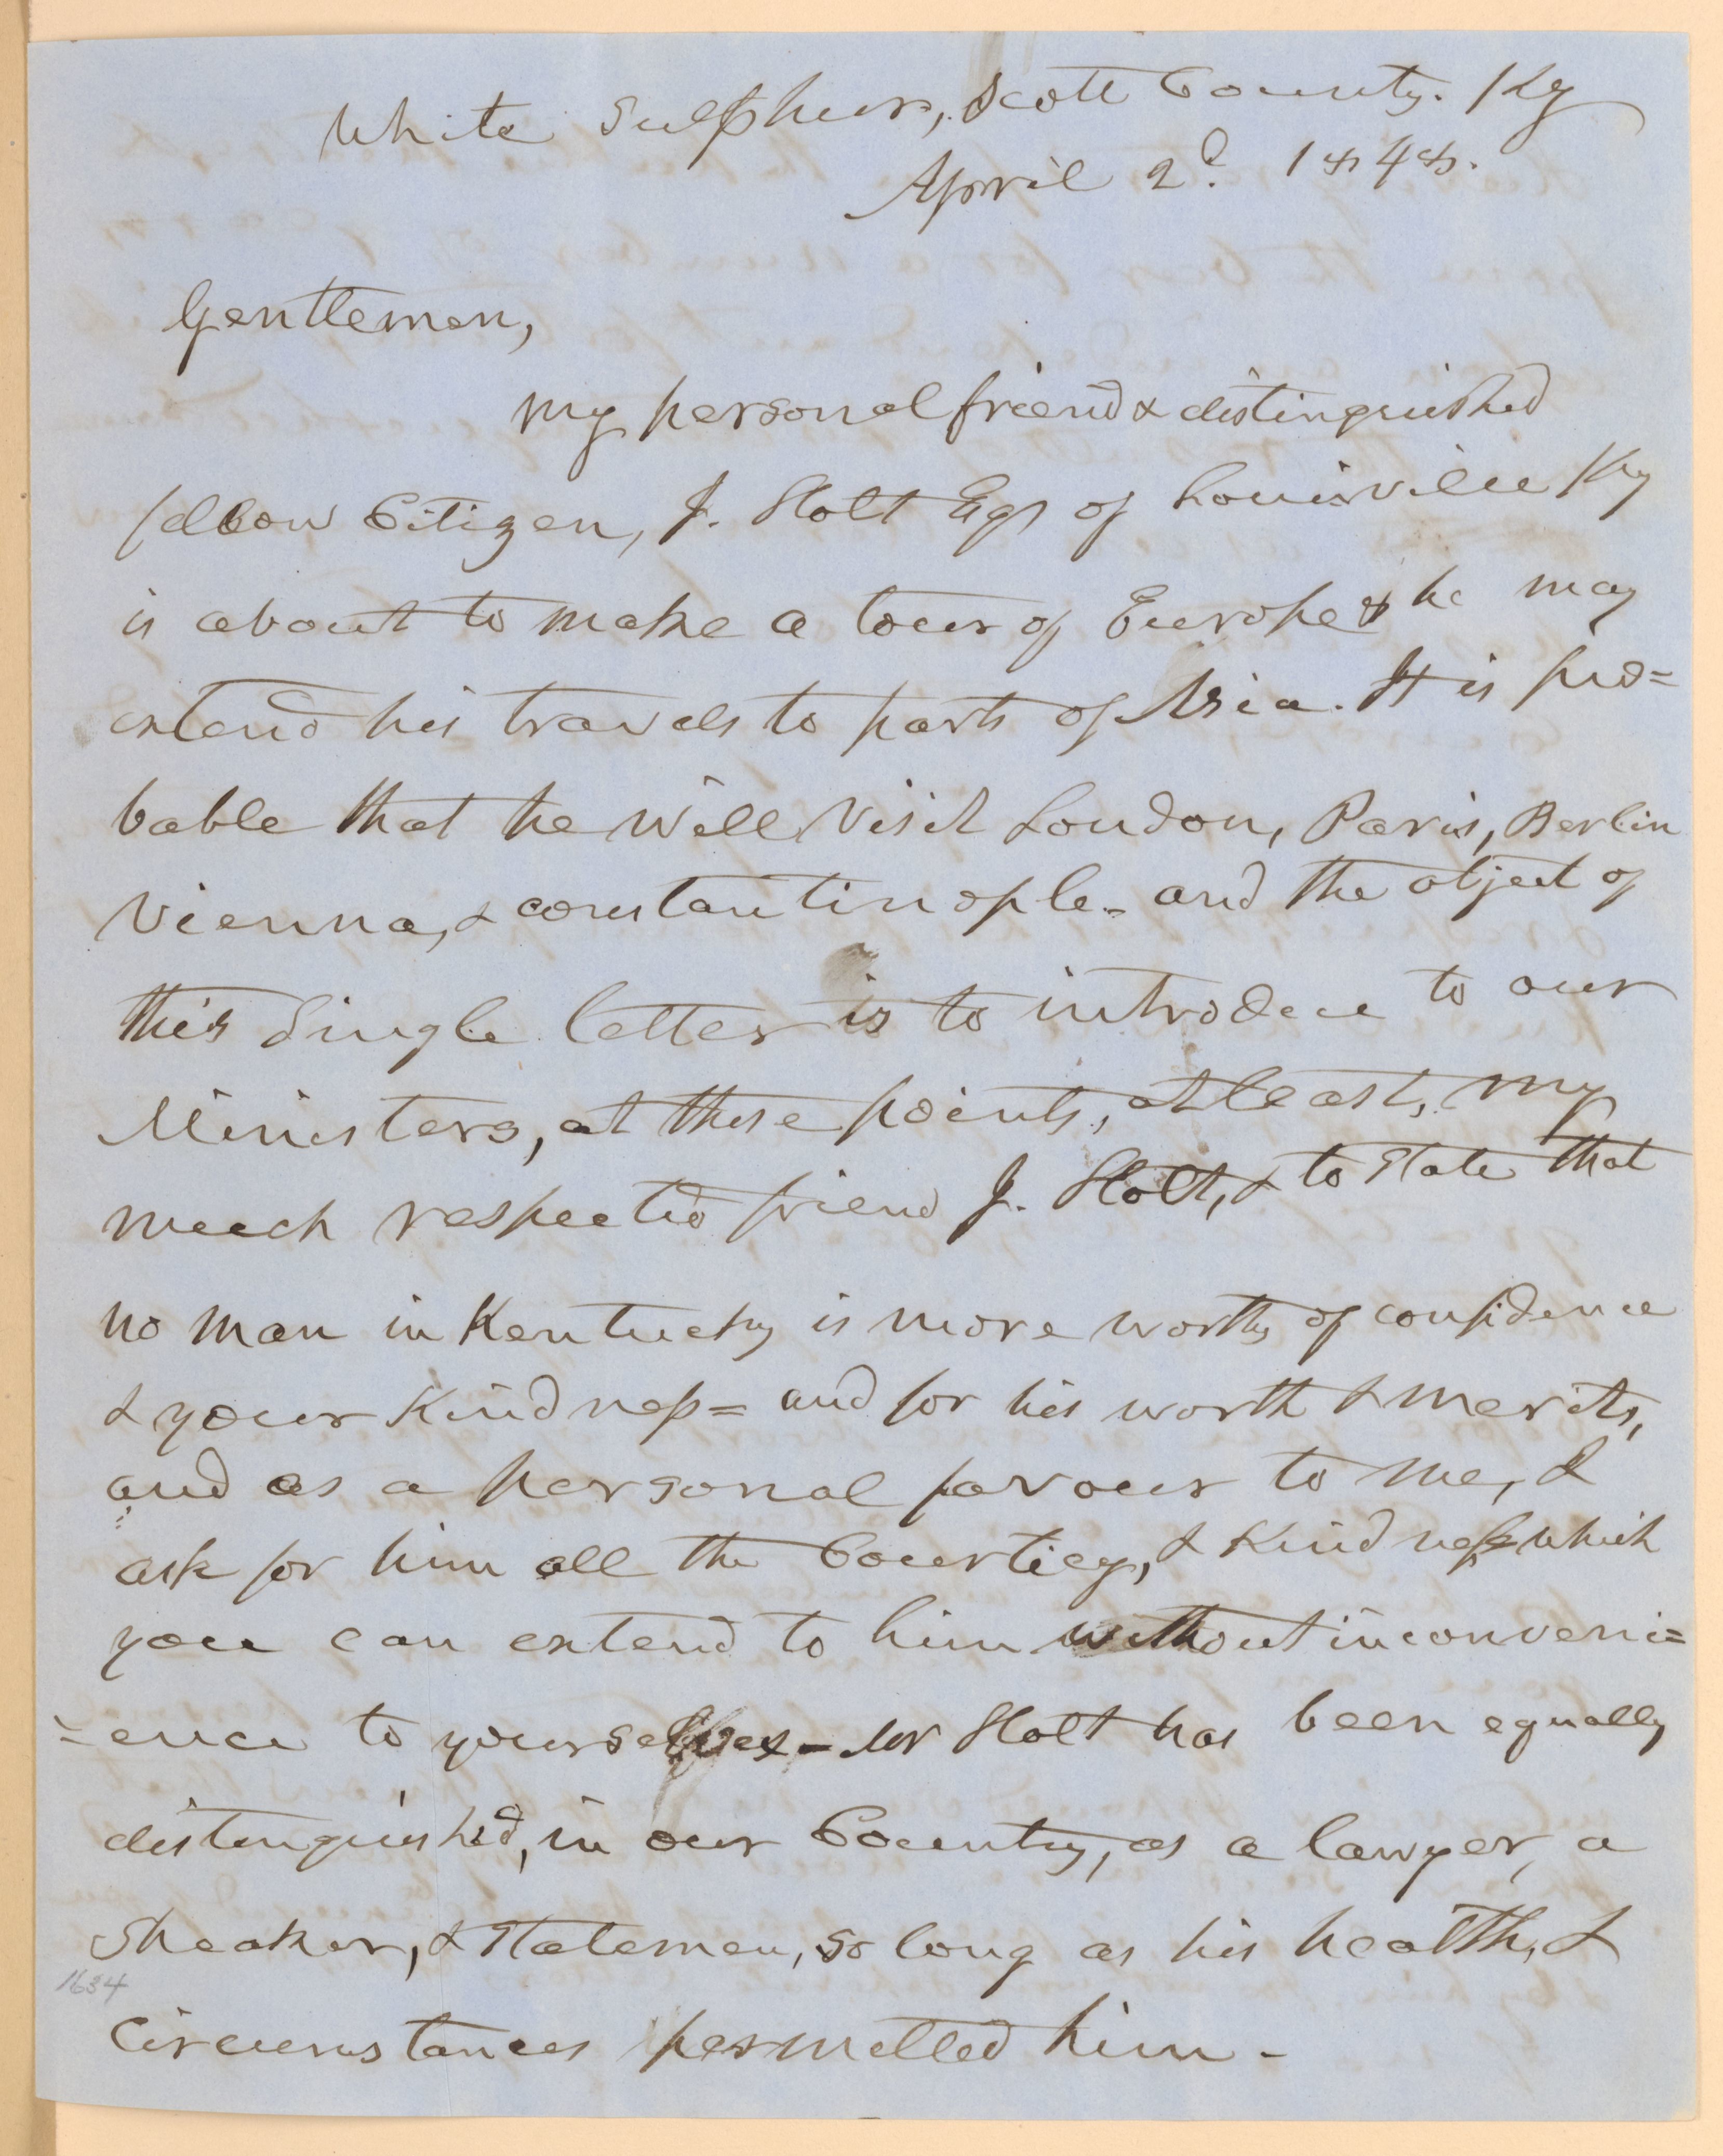 White Sulphur, Scott County. Ky
April 2d. 1848.
Gentlemen,
My personal friend & distinguished
fellow Citizen, J. Holt Esqr of Louisville Ky
is about to make a tour of Europe & he may
extend his travels to parts of Asia. It is pro=
bable that he will visit London, Paris, Berlin
Vienna, & constantinople - and the object of
this Single letter is to introduce to our
Ministers, at these points, at least, my
much respected friend J. Holt, & to state that
no man in Kentucky is more worthy of confidence
& your Kindness = and for his worth & merits,
and as a personal favour to me, I
ask for him all the Courtiey, & Kindness which
you can extend to him without inconveni=
=ence to yourselves - Mr Holt has been equally
distinguished, in our Country, as a lawyer, a
Speaker, & Statesman, so long as his health, &
1634
Circumstances permitted him -